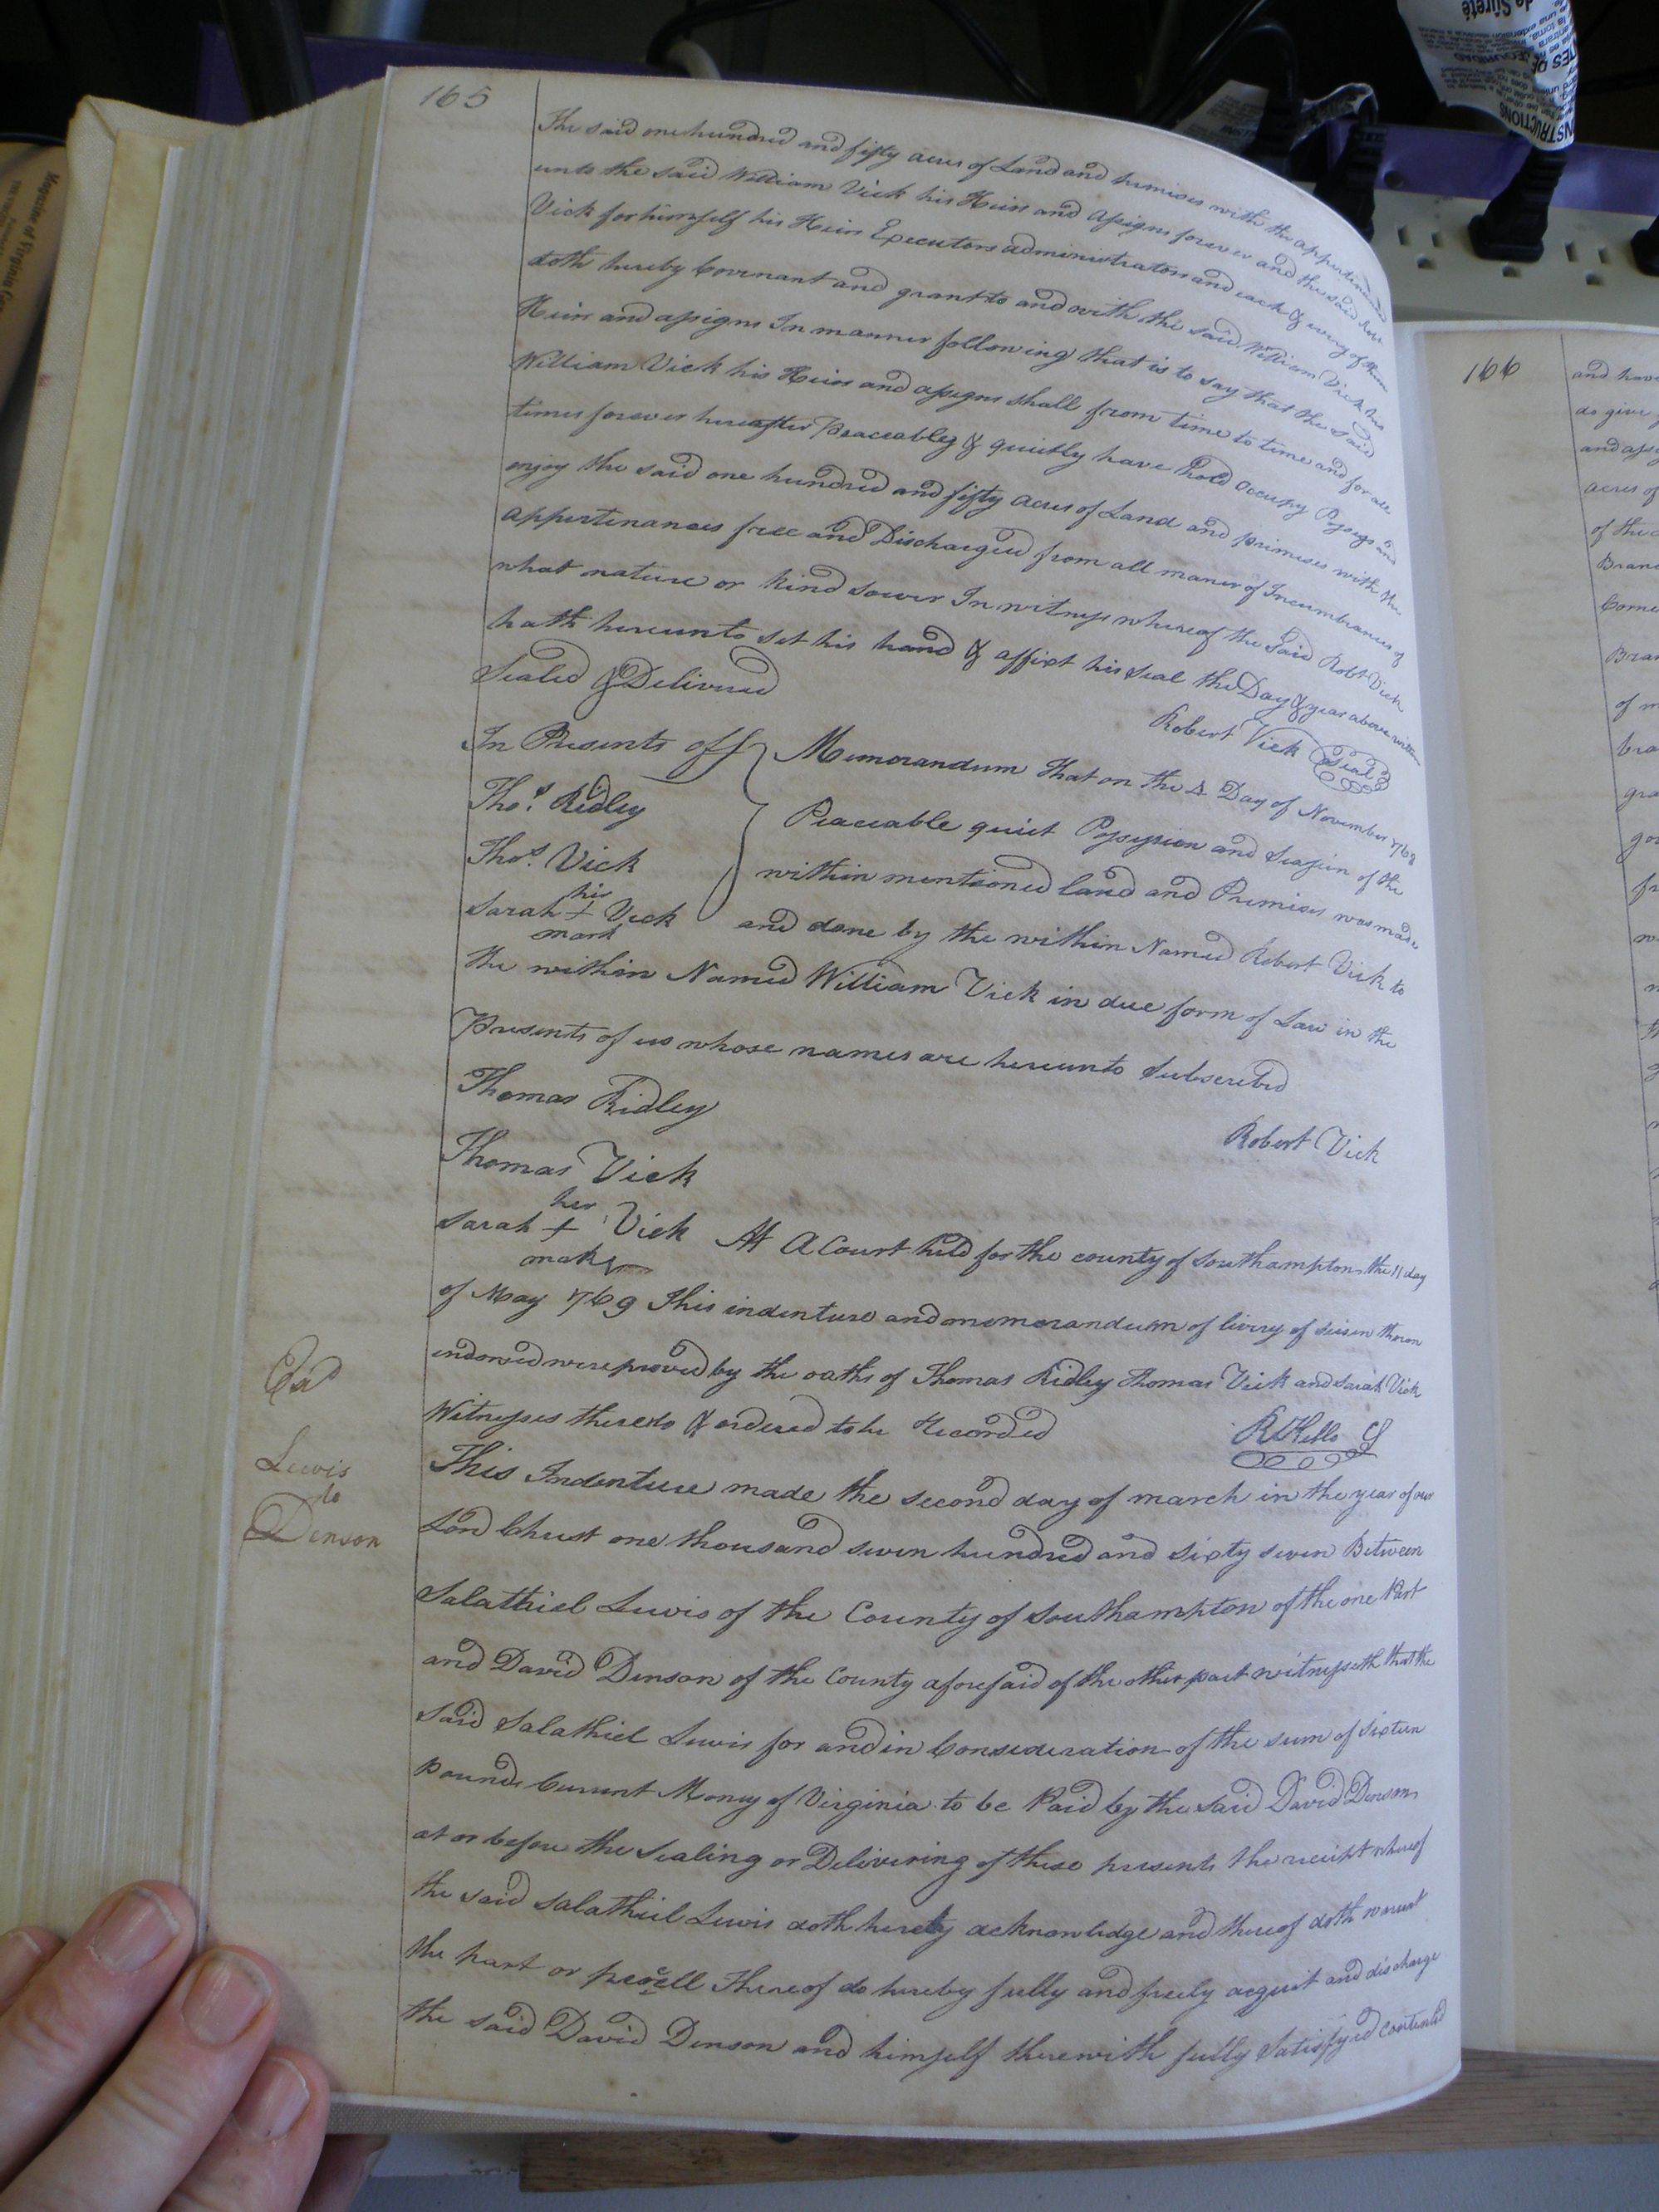 165
The said one hundred and fifty acres of Land and premises with the appurtinances
unto the said William Vick his Heirs and assigns forever and the said Robt
Vick for himself his Heirs Executors administrators and each & every of them
doth hereby Covenant and grant to and with the said William Vick his
Heirs and assigns In manner following that is to say that the said
William Vick his Heirs and assigns shall from time to time and for all
times forever hereafter Peaceably & quietly have hold occupy Possess and
enjoy the said one hundred and fifty acres of Land and premises with the
appurtenances free and Discharged from all maner of Incumbrances of
what nature or kind sower In witness whereof the said Robt Vick
hath hereunto set his hand & affixt his seal the Day & year above written
Sealed & Delivered
Robert Vick Seal
In Presents off
Thos. Ridley
Thos. Vick
his
Sarah + Vick
mark
Memorandum That on the 4 Day of November 1768
Peaceable quiet Possession and Seasion of the
within mentioned land and Premises was made
and done by the within Named Robert Vick to
the within Named William Vick in due form of Law in the
Presents of us whose names are hereunto Subscribed
Thomas Ridley
Robert Vick
Thomas Vick
her
Sarah + Vick
mark
At A Court held for the county of Southampton the 11 day
of May 1769 This indenture and memorandum of livery of seisen thereon
endorsed were proved by the oaths of Thomas Ridley Thomas Vick and Sarah Vick
Witnesses thereto & ordered to be Recorded
Exd
Lewis
to
Denson
This Indenture made the second day of march in the year of our
Lord Christ one thousand seven hundred and sixty seven Between
Salathiel Lewis of the County of Southampton of the one Part
and David Denson of the County aforesaid of the other part witnesseth that the
said Salathiel Lewis for and in Consideration of the sum of sixteen
Pounds Current Money of Virginia to be Paid by the said David Denson
at or before the Sealing or Delivering of these presents the receipt whereof
the said Salathiel Lewis doth hereby acknowledge and thereof doth
the part or percell Thereof do hereby fully and freely acquit and discharge
the said David Denson and himself therewith fully Satisfyed contented
166
and have
do give
and
acres of
of the